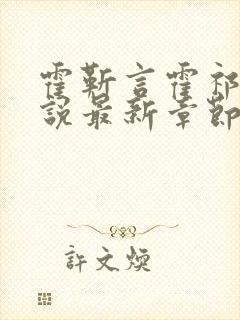 霍靳言霍祁
說最新章節
許文煥